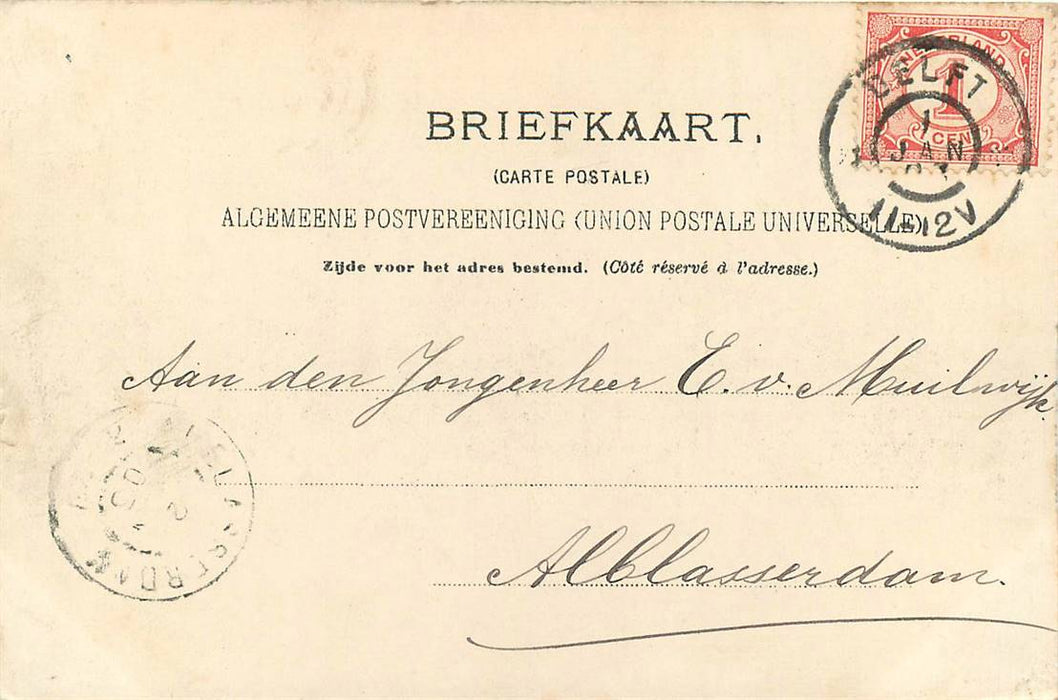 NEDERLAND
1
1 CENT
DELFT
1
JAN
11-12V
BRIEFKAART.
(CARTE POSTALE)
ALGEMEENE POSTVEREENIGING (UNION POSTALE UNIVERSELLE)
Zijde voor het adres bestemd. (Côté réservé à l'adresse.)
Aan den Jongenheer C. v. Muilwijk.
ALBLASSERDAM
Alblasserdam.